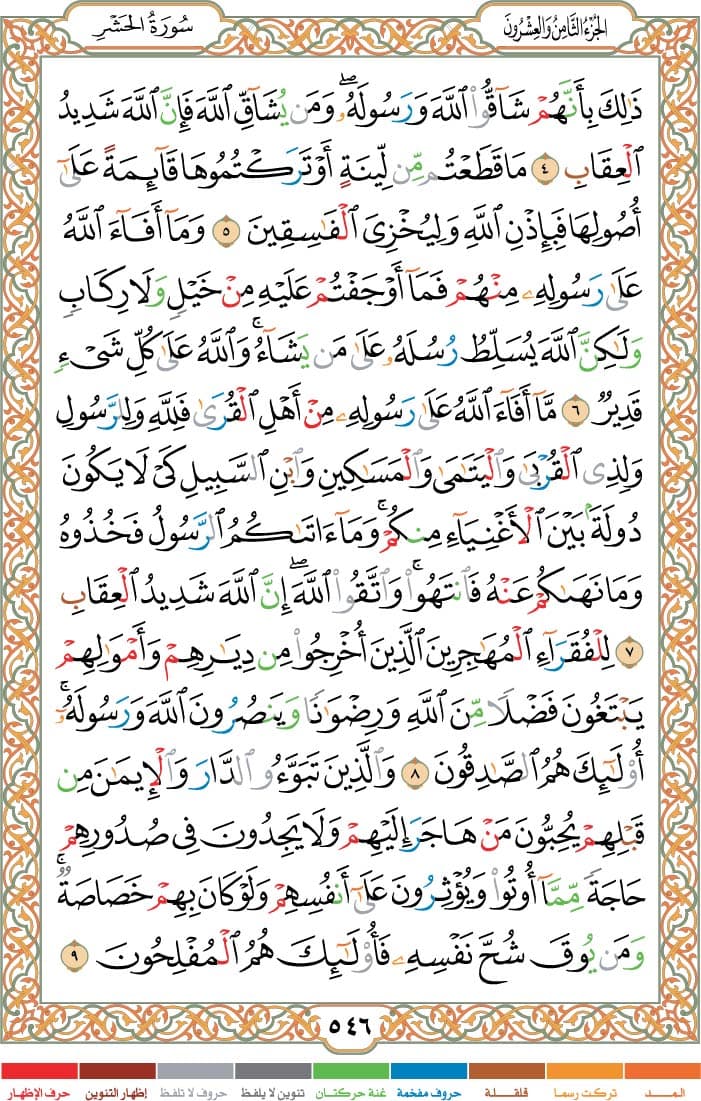 الجُزْءُ الثَّامِنُ وَالعِشْرُونَ
سُورَةُ الحَشْرِ
ذَٰلِكَ بِأَنَّهُمْ شَآقُّوا۟ ٱللَّهَ وَرَسُولَهُۥۖ وَمَن يُشَآقِّ ٱللَّهَ فَإِنَّ ٱللَّهَ شَدِيدُ
ٱلْعِقَابِ ٤ مَا قَطَعْتُم مِّن لِّينَةٍ أَوْ تَرَكْتُمُوهَا قَآئِمَةً عَلَىٰٓ
أُصُولِهَا فَبِإِذْنِ ٱللَّهِ وَلِيُخْزِىَ ٱلْفَٰسِقِينَ ٥ وَمَآ أَفَآءَ ٱللَّهُ
عَلَىٰ رَسُولِهِۦ مِنْهُمْ فَمَآ أَوْجَفْتُمْ عَلَيْهِ مِنْ خَيْلٍ وَلَا رِكَابٍ
وَلَٰكِنَّ ٱللَّهَ يُسَلِّطُ رُسُلَهُۥ عَلَىٰ مَن يَشَآءُۚ وَٱللَّهُ عَلَىٰ كُلِّ شَىْءٍ
قَدِيرٌ ٦ مَّآ أَفَآءَ ٱللَّهُ عَلَىٰ رَسُولِهِۦ مِنْ أَهْلِ ٱلْقُرَىٰ فَلِلَّهِ وَلِلرَّسُولِ
وَلِذِى ٱلْقُرْبَىٰ وَٱلْيَتَٰمَىٰ وَٱلْمَسَٰكِينِ وَٱبْنِ ٱلسَّبِيلِ كَىْ لَا يَكُونَ
دُولَةًۢ بَيْنَ ٱلْأَغْنِيَآءِ مِنكُمْۚ وَمَآ ءَاتَىٰكُمُ ٱلرَّسُولُ فَخُذُوهُ
وَمَا نَهَىٰكُمْ عَنْهُ فَٱنتَهُوا۟ۚ وَٱتَّقُوا۟ ٱللَّهَۖ إِنَّ ٱللَّهَ شَدِيدُ ٱلْعِقَابِ
٧ لِلْفُقَرَآءِ ٱلْمُهَٰجِرِينَ ٱلَّذِينَ أُخْرِجُوا۟ مِن دِيَٰرِهِمْ وَأَمْوَٰلِهِمْ
يَبْتَغُونَ فَضْلًا مِّنَ ٱللَّهِ وَرِضْوَٰنًا وَيَنصُرُونَ ٱللَّهَ وَرَسُولَهُۥٓۚ
أُو۟لَٰٓئِكَ هُمُ ٱلصَّٰدِقُونَ ٨ وَٱلَّذِينَ تَبَوَّءُو ٱلدَّارَ وَٱلْإِيمَٰنَ مِن
قَبْلِهِمْ يُحِبُّونَ مَنْ هَاجَرَ إِلَيْهِمْ وَلَا يَجِدُونَ فِى صُدُورِهِمْ
حَاجَةً مِّمَّآ أُوتُوا۟ وَيُؤْثِرُونَ عَلَىٰٓ أَنفُسِهِمْ وَلَوْ كَانَ بِهِمْ خَصَاصَةٌۚ
وَمَن يُوقَ شُحَّ نَفْسِهِۦ فَأُو۟لَٰٓئِكَ هُمُ ٱلْمُفْلِحُونَ ٩
٥٤٦
المـــد تركت رسما قلقـــلة حروف مفخمة غنة حركتان تنوين لا يلفظ حروف لا تلفظ إظهار التنوين حرف الإظهار